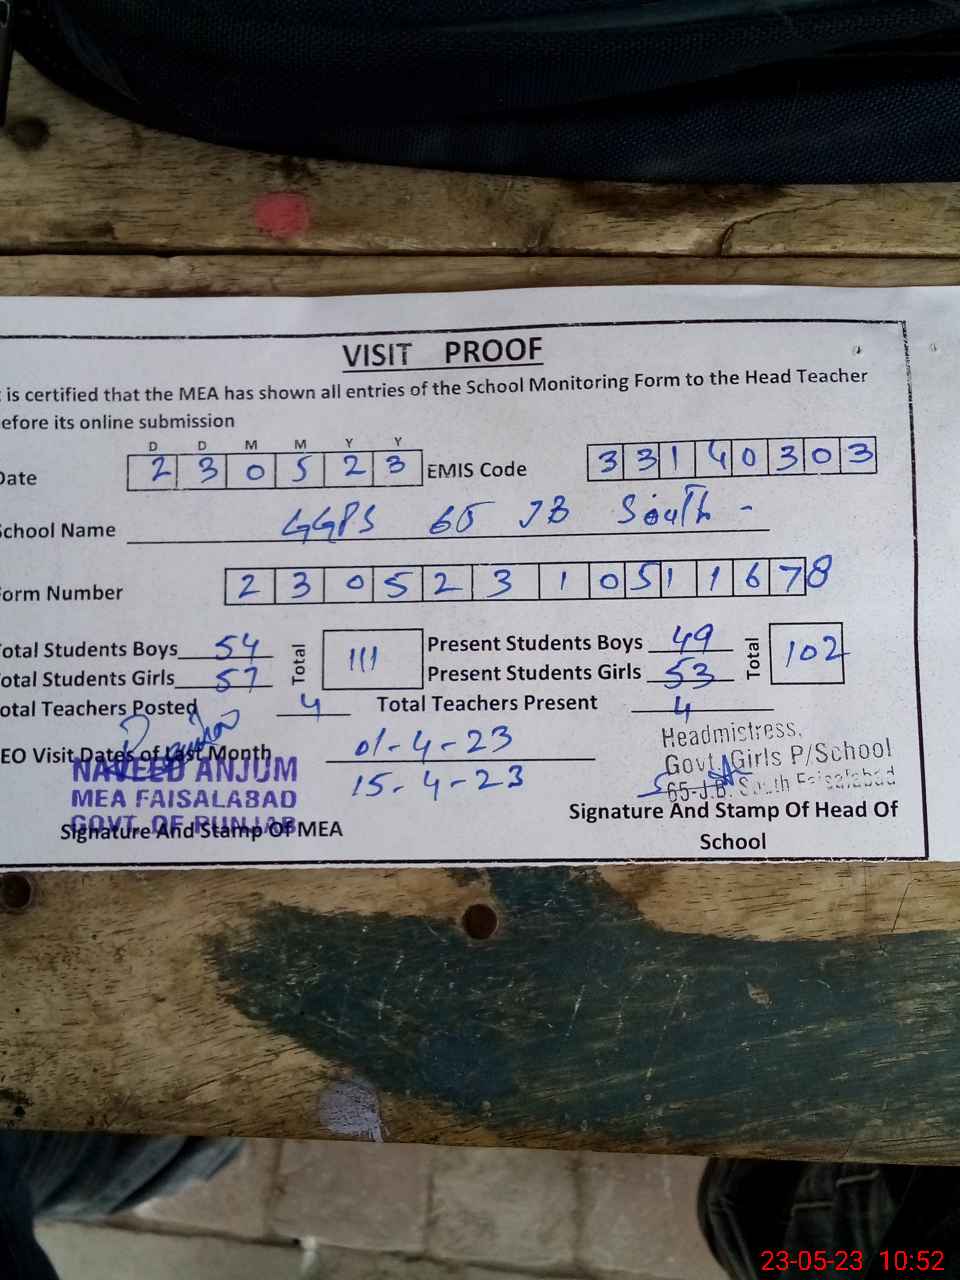 VISIT PROOF
is certified that the MEA has shown all entries of the School Monitoring Form to the Head Teacher
efore its online submission
D D M M Y Y
Date 2 3 0 5 2 3 EMIS Code 3 3 1 4 0 3 0 3
School Name GGPS 65 JB South -
orm Number 2 3 0 5 2 3 1 0 5 1 1 6 7 8
otal Students Boys 54 Total 111 Present Students Boys 49 Total 102
otal Students Girls 57 Present Students Girls 53
otal Teachers Posted 4 Total Teachers Present 4
EO Visit Dates of Last Month 01-4-23
15-4-23
NAVEED ANJUM
MEA FAISALABAD
GOVT. OF PUNJAB
Signature And Stamp Of MEA
Headmistress,
Govt. Girls P/School
65-J.B. South Faisalabad
Signature And Stamp Of Head Of
School
23-05-23 10:52